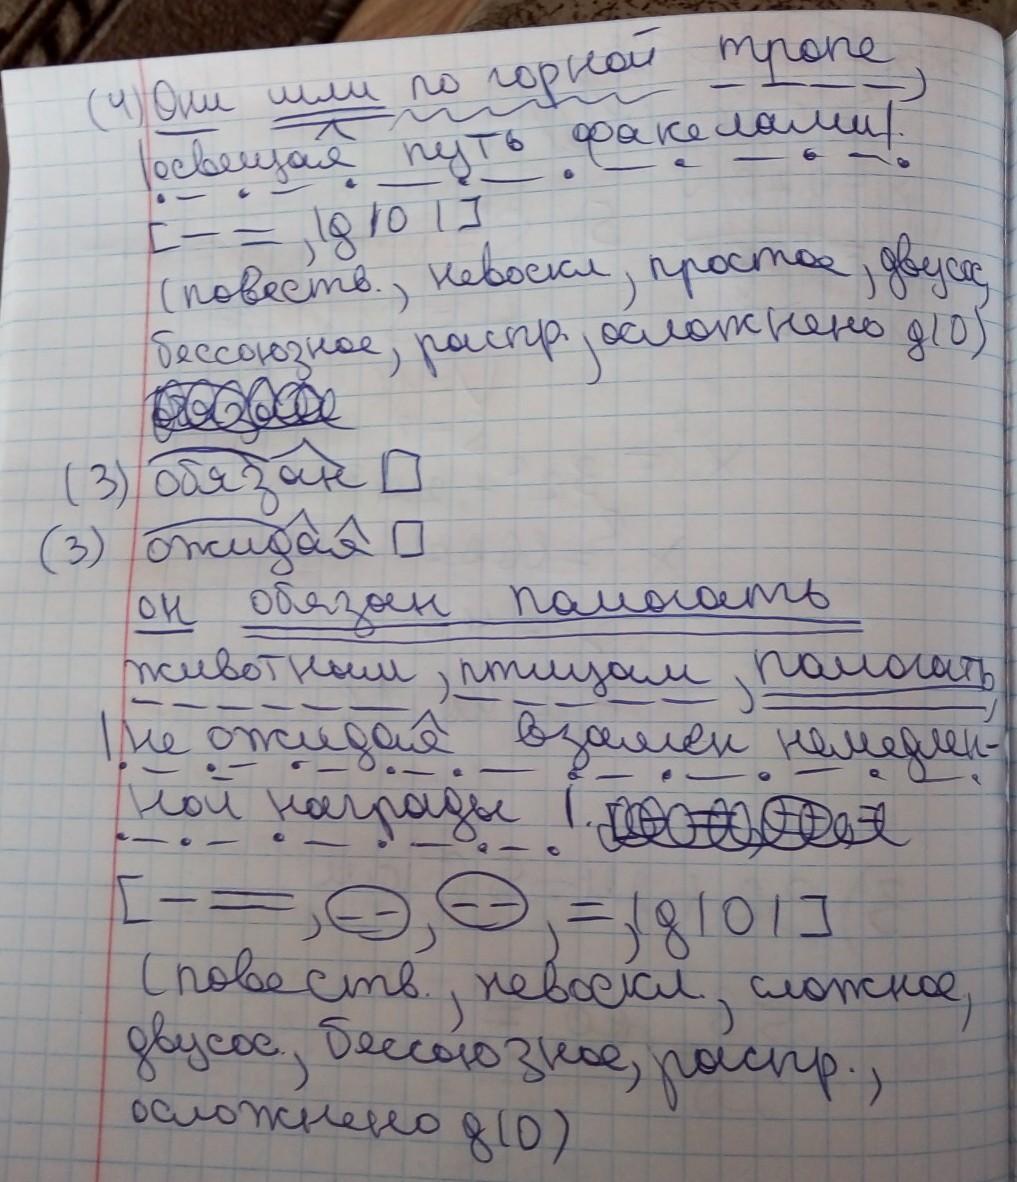 (4) Они шли по горной тропе,
|освещая путь факелами|.
[— =, |д|О|]
(повеств., невоскл, простое, двусос,
бессоюзное, распр., осложнено д(О)
(3) обязан □
(3) ожидая □
он обязан помогать
животным, птицам, помогать,
|не ожидая взамен немедлен-
ной награды|.
[— =, (– –), (– –), =, |д|О|]
(повеств., невоскл., сложное,
двусос., бессоюзное, распр.,
осложнено д(О)